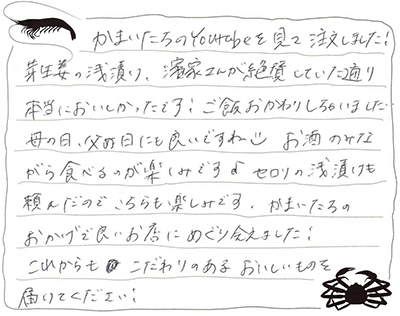 かまいたちのYoutubeを見て注文しました!
芽生姜の浅漬け、濱家さんが絶賛していた通り
本当においしかったです! ご飯おかわりしちゃいました
母の日、父の日にも良いですね お酒のみな
がら食べるのが楽しみです♪ セロリの浅漬けも
頼んだので こちらも楽しみです。かまいたちの
おかげで良いお店にめぐり会えました!
これからも こだわりのある おいしいものを
届けてください!